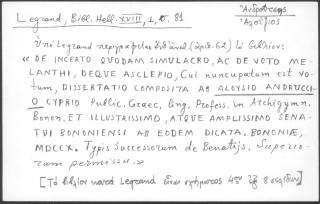 Legrand, Bibl. Hell. XVIII, 1, σ. 81
Ἀνδροῦτσης
Ἀλοΐσιος
Ὑπὸ Legrand περιγράφεται (ἀριθ. 62) τὸ βιβλίον:
« DE INCERTO QUODAM SIMULACRO, AC DE VOTO ME-
LANTHI, DEQUE ASCLEPIO, Cui nuncupatum est vo-
tum, DISSERTATIO COMPOSITA AB ALOYSIO ANDRUCCI-
O CYPRIO Public. Graec. Ling. Profess. in Archigymn.
Bonon. ET ILLUSTRISSIMO, ATQUE AMPLISSIMO SENA-
TUI BONONIENSI AB EODEM DICATA. BONONIÆ,
MDCCX. Typis Successorum de Benatijs. Superio-
rum permissu. »
[Τὸ βιβλίον κατὰ Legrand εἶναι σχήματος 4ον ἐξ 8 σελίδων]